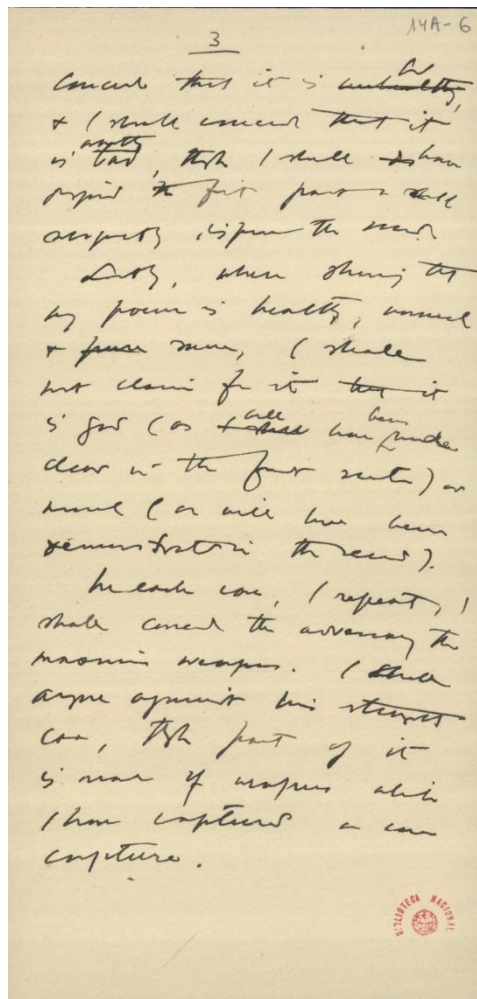 3
14A-6
concede that it is
& I shall concede that it
is bad, though I shall have
the first part & shall
the
Lastly, when showing that
my poem is healthy, normal
& pure sane, I shall
not claim for it that it
is good (as will have been made
clear in the first section) or
moral (as will have been
demonstrated in the second).
In each case, I repeat, I
shall concede the adversary the
maximum weapons. I shall
argue against his strongest
case, though part of it
is made of weapons which
I have captured or can
capture.
BIBLIOTECA NACIONAL